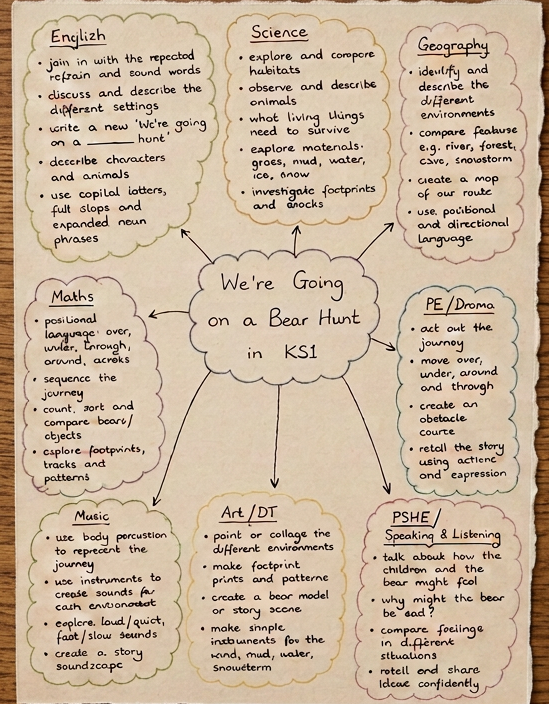 We're Going
on a Bear Hunt
in KS1
English
• join in with the repeated
refrain and sound words
• discuss and describe the
different settings
• write a new 'We're going
on a ______ hunt'
• describe characters
and animals
• use capital letters,
full stops and
expanded noun
phrases
Science
• explore and compare
habitats
• observe and describe
animals
• what living things
need to survive
• explore materials.
mud, water,
ice, snow
• investigate footprints
and
Geography
• identify and
describe the
different
environments
• compare
e.g. river, forest,
cave, snowstorm
• create a map
of our route
• use positional
and directional
language
Maths
• positional
language: over,
under, through,
around, across
• sequence the
journey
• count, sort and
compare bears/
objects
• explore footprints,
tracks and
patterns
PE/Drama
• act out the
journey
• move over,
under, around
and through
• create an
obstacle
course
• retell the story
using actions
and expression
Music
• use body percussion
to represent the
journey
• use instruments to
create sounds for
each
• explore loud/quiet,
fast/slow sounds
• create a story
soundscape
Art/DT
• paint or collage the
different environments
• make footprint
prints and patterns
• create a bear model
or story scene
• make simple
instruments for the
wind, mud, water,
PSHE/
Speaking & Listening
• talk about how the
children and the
bear might feel
• why might the bear
be sad?
• compare feelings
in different
situations
• retell and share
ideas confidently